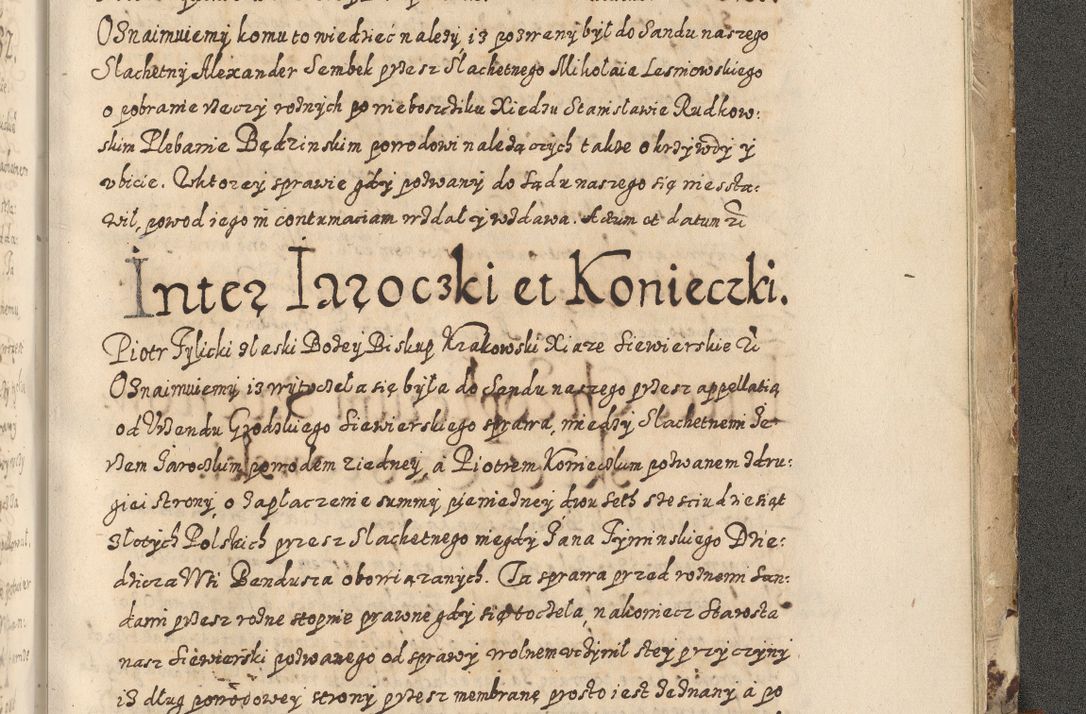 Oznaimuiemy komu to wiedzieć należy iż pozwany był do Sandu naszego
Slachetny Alexander Sembek przesz Slachetnego Mikołaia Lesniowskiego
o pobranie rzeczy roznych po nieboszcziku Xiedzu Stanisławie Rudkow:
skim Plebanie Będzinskim powodowi należączych także o krzywdy y
vbicie. W ktorey sprawie gdy pozwany do Sądu naszego się niessta:
wił, powod iego in contumaciam wzdał y wzdawa. Actum et datum
Inter Iaroczki et Konieczki.
Piotr Tylicki z łaski Bozey Biskup Krakowski Xiaze Siewierskie
Oznaimuiemy iż wytoczeła się była do Sandu naszego przesz appellatią
od Vrzendu Grodzkiego Siewierskiego sprawa, miedzy Slachetnem Je
rzem Jaroczkim powodem z iedney, a Piotrem Konieczkim pozwanem z dru:
giei strony, o zapłaczenie summy pieniedzney dwu seth szesciudziesiąt
złotych Polskich przesz Slachetnego niegdy Jana Tyminskiego Dzie:
dzicza Wsi Bendusza obowiązanych. Ta sprawa przed roznemi San:
dami przesz rozne stopnie prawne gdy się toczeła, nakoniecz Starosta
nasz Siewierski pozwanego od sprawy wolnem vczynił stey przyczyny
iż dług powodowey strony przesz membranę prosto iest zeznany a po